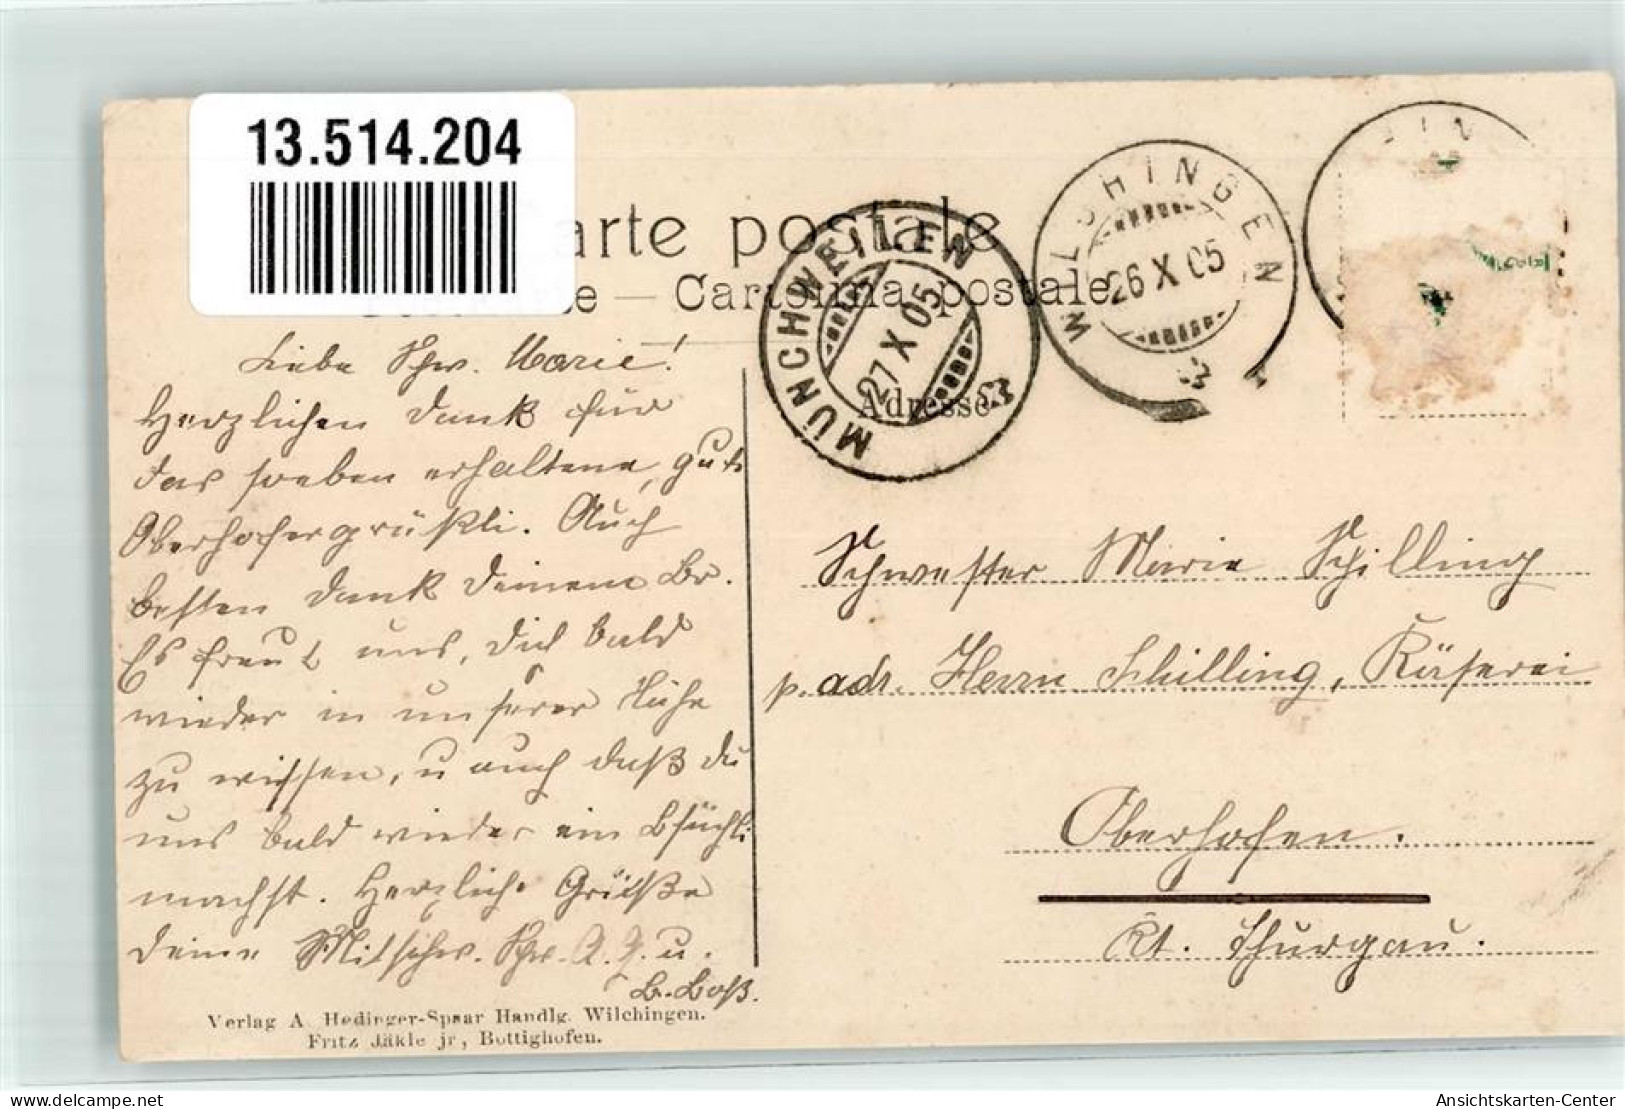 13.514.204
arte postale
te — Cartolina postale
MÜNCHWEILEN
27 X 05
WILCHINGEN
26 X 05
Adresse
Liebe Schw. Marie!
Herzlichen Dank für
das soeben erhaltene, gute
Oberhofergrüßli. Auch
besten Dank Deinem Br.
Es freut uns, dich bald
wieder in unserer Nähe
zu wissen, u auch daß du
uns bald wieder ein Bsüchli
machst. Herzliche Grüße
Deine Mitschw. Schw. A. Z. u.
B. Boß.
Schwester Marie Schilling
p. adr. Herrn Schilling, Käserei
Oberhofen.
Kt. Thurgau.
Verlag A. Hedinger-Spaar Handlg. Wilchingen.
Fritz Jäkle jr, Bottighofen.
Ansichtskarten-Center